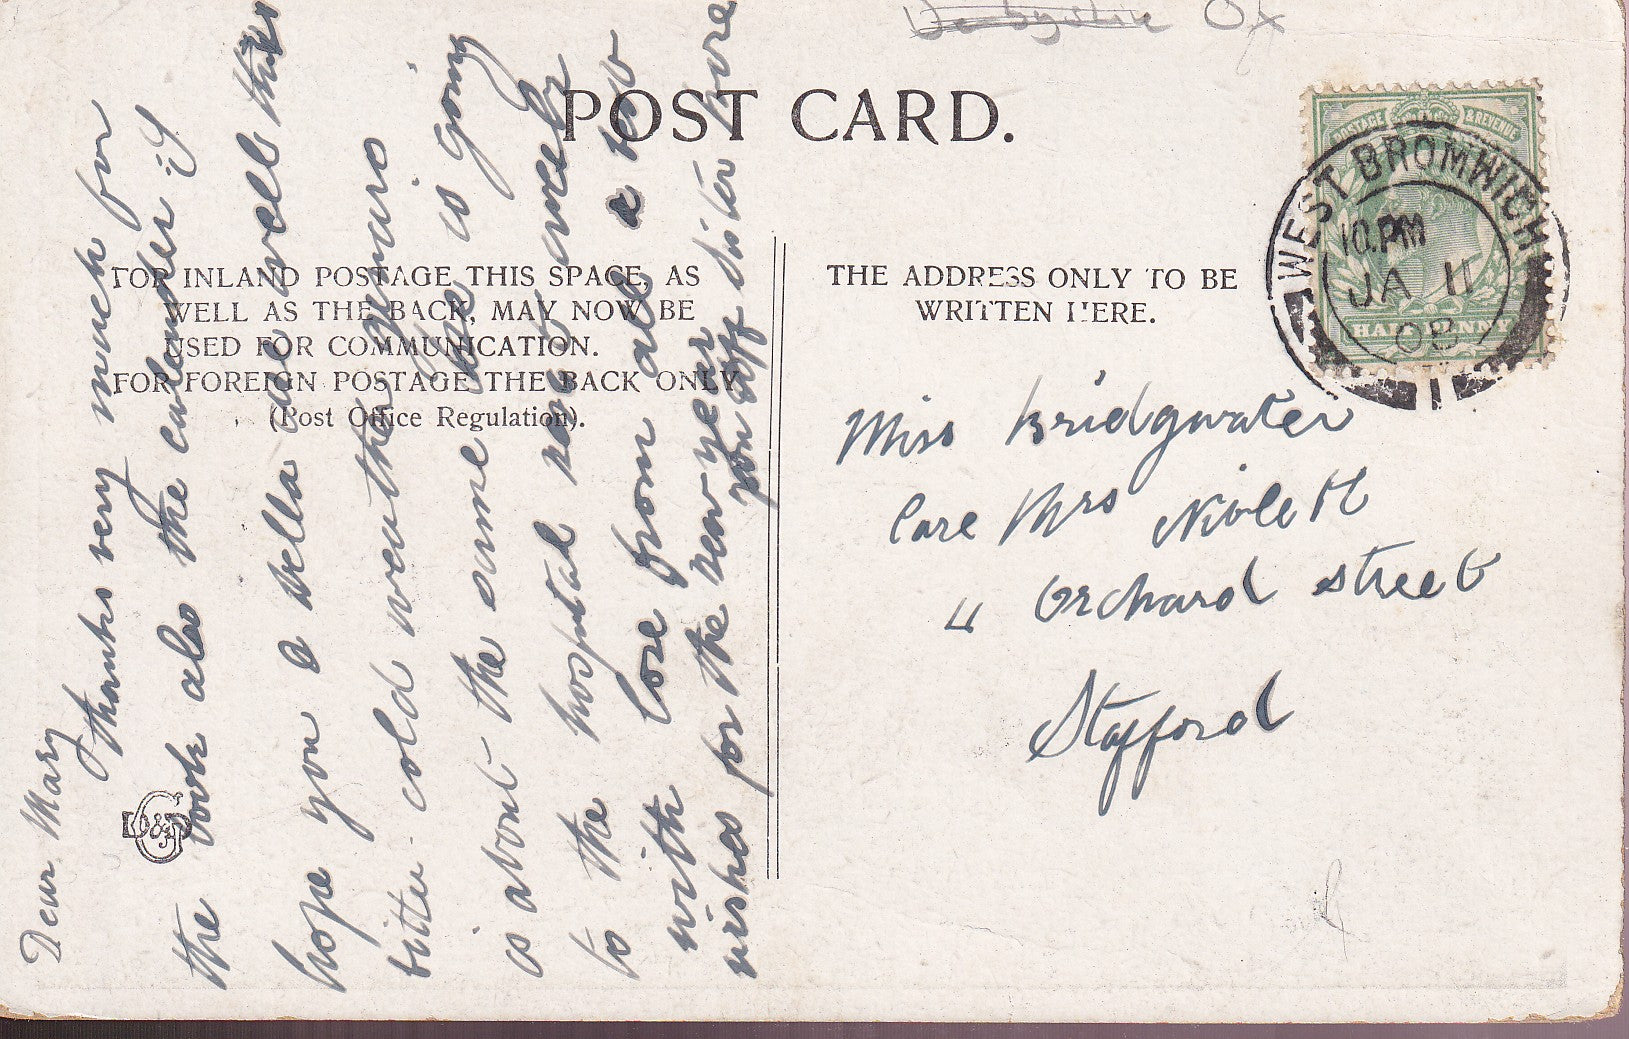 Derbyshire Ox
POST CARD.
FOR INLAND POSTAGE THIS SPACE, AS
WELL AS THE BACK, MAY NOW BE
USED FOR COMMUNICATION.
FOR FOREIGN POSTAGE THE BACK ONLY
(Post Office Regulation).
THE ADDRESS ONLY TO BE
WRITTEN HERE.
POSTAGE & REVENUE
HALFPENNY
WEST BROMWICH
10.PM
JA 11
08
1
Miss Bridgwater
Care Mrs Niblett
11 Orchard Street
Stafford
Dear Mary
thanks very much for
the also the calender if
hope you & Nella are well this
bitter cold weather
is about the same he is going
to the hospital next week
with love from all & to
wishes for the new year